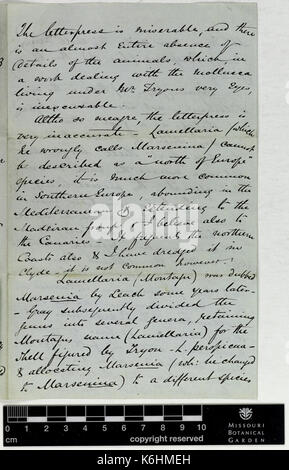 The letterpress is miserable, and there
is an almost entire absence of
details of the animals, which, in
a work dealing with the mollusca
living under Mr. Tryons very eyes,
is inexcusable.
Altho so meagre, the letterpress is
very inaccurate. Lamellaria (which
he wrongly calls Marsenina) cannot
be described as a "north of Europe"
species, it is much more common
in Southern Europe, abounding in the
Mediterranean & extending to the
Madeiran & I believe also to
the Canaries - the northern
Coasts also & I have dredged it in
Clyde - it is not common however.
Lamellaria (Montagu) was dubbed
Marsenia by Leach some years later -
Gray subsequently divided the
genus into several genera, retaining
Montagus name (Lamellaria) for the
Shell figured by Tryon - L. perspicua -
& allocating Marsenia (wh: he changed
to Marsenina) to a different species
alamy
0
cm
1 2 3 4 5 6 7 8 9 10
copyright reserved
MISSOURI
BOTANICAL
GARDEN
alamy stock photo
W6HMEH